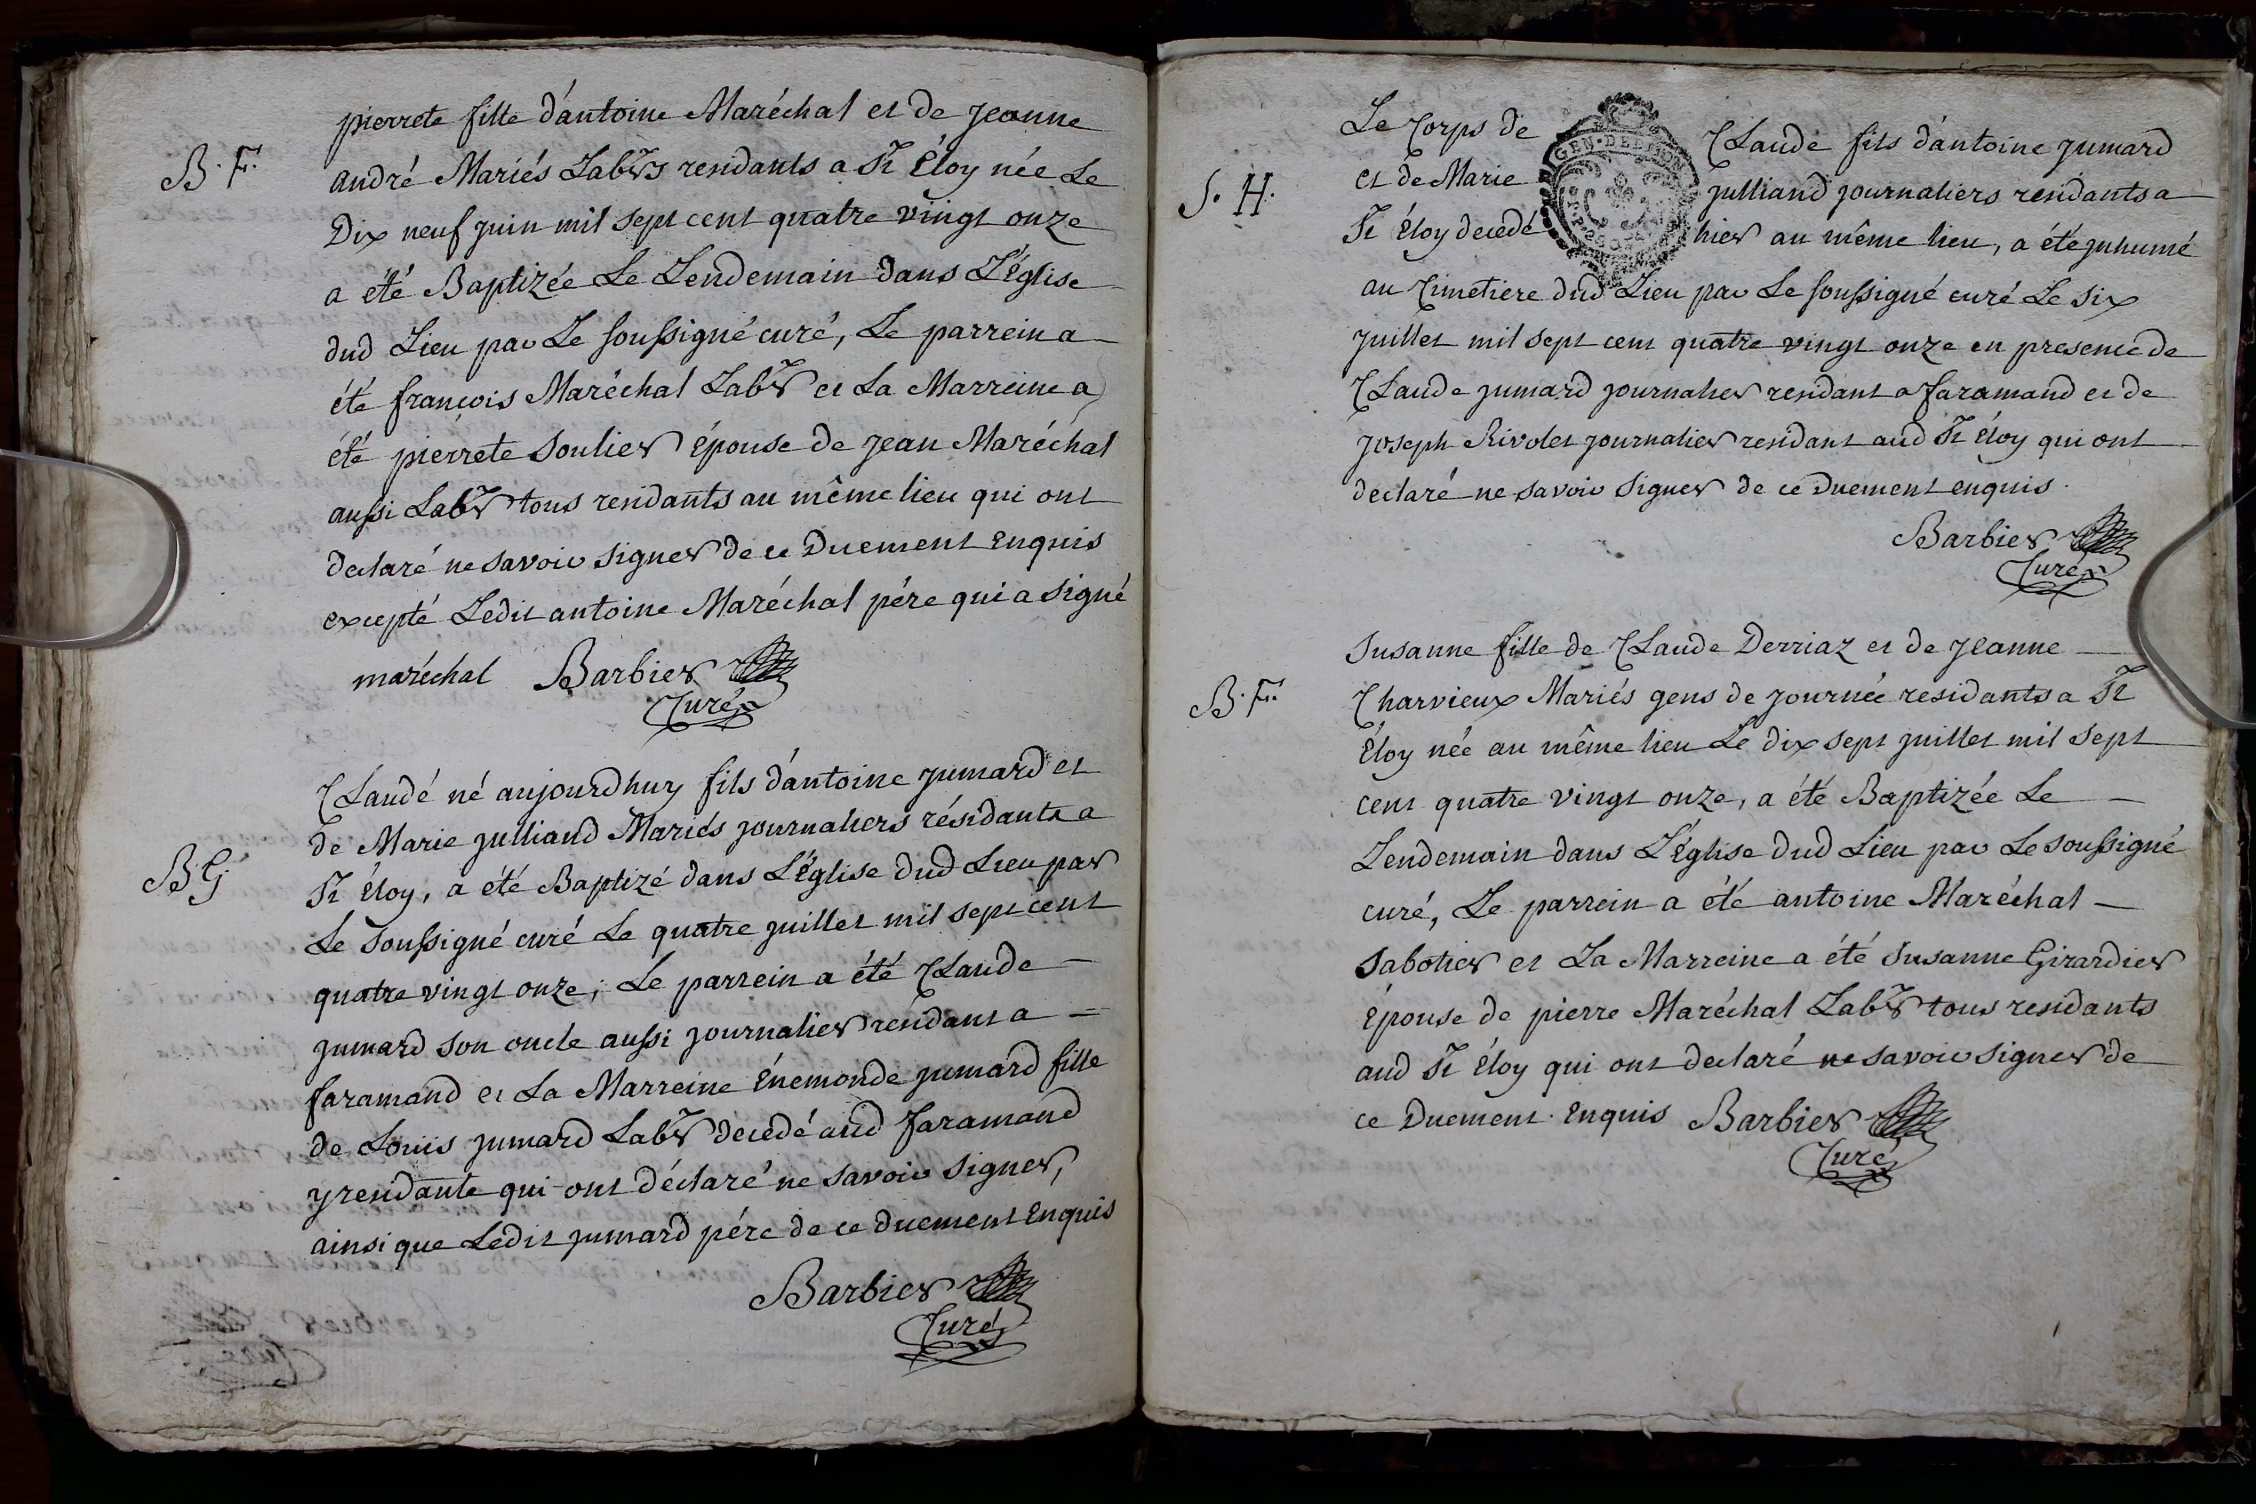 pierrete fille d'antoine Maréchal et de jeanne
B. F. andré Mariés Labrs residants a St Éloy née Le
Dix neuf juin mil sept cent quatre vingt onze
a été Baptizée Le Lendemain dans L'Église
dud Lieu par Le soussigné curé, Le parrein a
été françois Maréchal Labr et La Marreine a
été pierrete soulier Épouse de jean Maréchal
aussi Labr tous residants au même lieu qui ont
declaré ne savoir signer de ce Duement Enquis
excepté Ledit antoine Maréchal pére qui a signé
maréchal Barbier
Curé
Claude né aujourdhuy fils d'antoine jumard et
de Marie julliand Mariés journaliers résidants a
B. G. St Éloy, a été Baptizé dans L'Église dud Lieu par
Le soussigné curé Le quatre juillet mil sept cent
quatre vingt onze; Le parrein a été Claude
jumard son oncle aussi journalier residant a
faramand et La Marreine Énemonde jumard fille
de Louis jumard Labr decedé aud faramand
y residante qui ont déclaré ne savoir signer,
ainsi que Ledit jumard pére de ce Duement Enquis
Barbier
Curé
Le Corps de Claude fils d'antoine jumard
S. H. et de Marie julliand journaliers residants a
St Éloy decedé hier au même lieu, a été jnhumé
au Cimetiere dud Lieu par Le soussigné curé Le six
juillet mil sept cent quatre vingt onze en presence de
Claude jumard journalier residant a faramand et de
joseph Rivolet journalier residant aud St Éloy qui ont
declaré ne savoir signer de ce Duement enquis.
Barbier
Curé
GEN. DE DIJON
Susanne fille de Claude Derriaz et de jeanne
B. F. Charvieux Mariés gens de journée residants a St
Éloy née au même lieu Le dix sept juillet mil sept
cent quatre vingt onze, a été Baptizée Le
Lendemain dans L'Église dud Lieu par Le soussigné
curé, Le parrein a été antoine Maréchal
sabotier et La Marreine a été Susanne Girardier
Épouse de pierre Maréchal Labr tous residants
aud St Éloy qui ont declaré ne savoir signer de
ce Duement Enquis Barbier
Curé